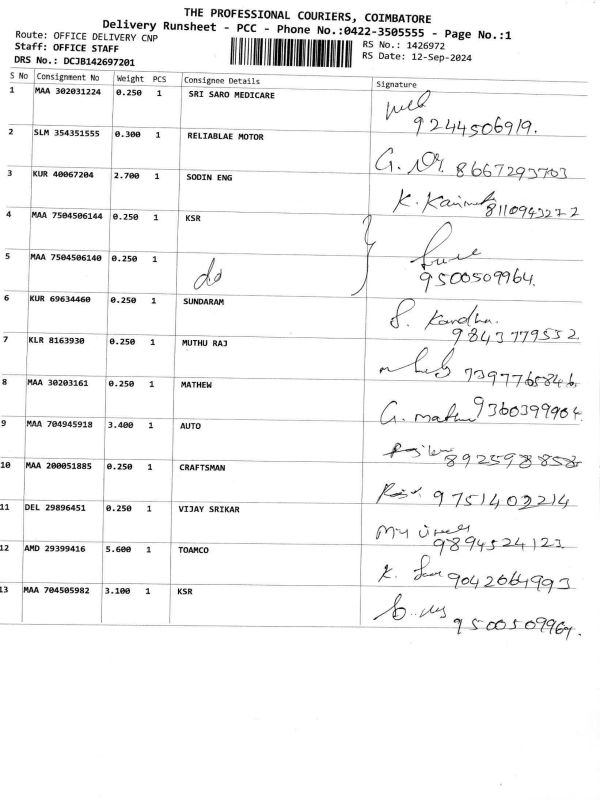 THE PROFESSIONAL COURIERS, COIMBATORE
Delivery Runsheet - PCC - Phone No.:0422-3505555 - Page No.:1
Route: OFFICE DELIVERY CNP
Staff: OFFICE STAFF
DRS No.: DCJB142697201
RS No.: 1426972
RS Date: 12-Sep-2024
S No Consignment No Weight PCS Consignee Details Signature
1 MAA 302031224 0.250 1 SRI SARO MEDICARE
9244506919.
2 SLM 354351555 0.300 1 RELIABLAE MOTOR
G. 8667293703
3 KUR 40067204 2.700 1 SODIN ENG
K. 8110943272
4 MAA 7504506144 0.250 1 KSR
5 MAA 7504506140 0.250 1 do
9500509964.
6 KUR 69634460 0.250 1 SUNDARAM
S. Kardha.
9843779552
7 KLR 8163930 0.250 1 MUTHU RAJ
7397765846
8 MAA 30203161 0.250 1 MATHEW
G. 9360399904.
9 MAA 704945918 3.400 1 AUTO
8925988585
10 MAA 200051885 0.250 1 CRAFTSMAN
9751402214
11 DEL 29896451 0.250 1 VIJAY SRIKAR
9894524123.
12 AMD 29399416 5.600 1 TOAMCO
K. 9042664993
13 MAA 704505982 3.100 1 KSR
9500509964.